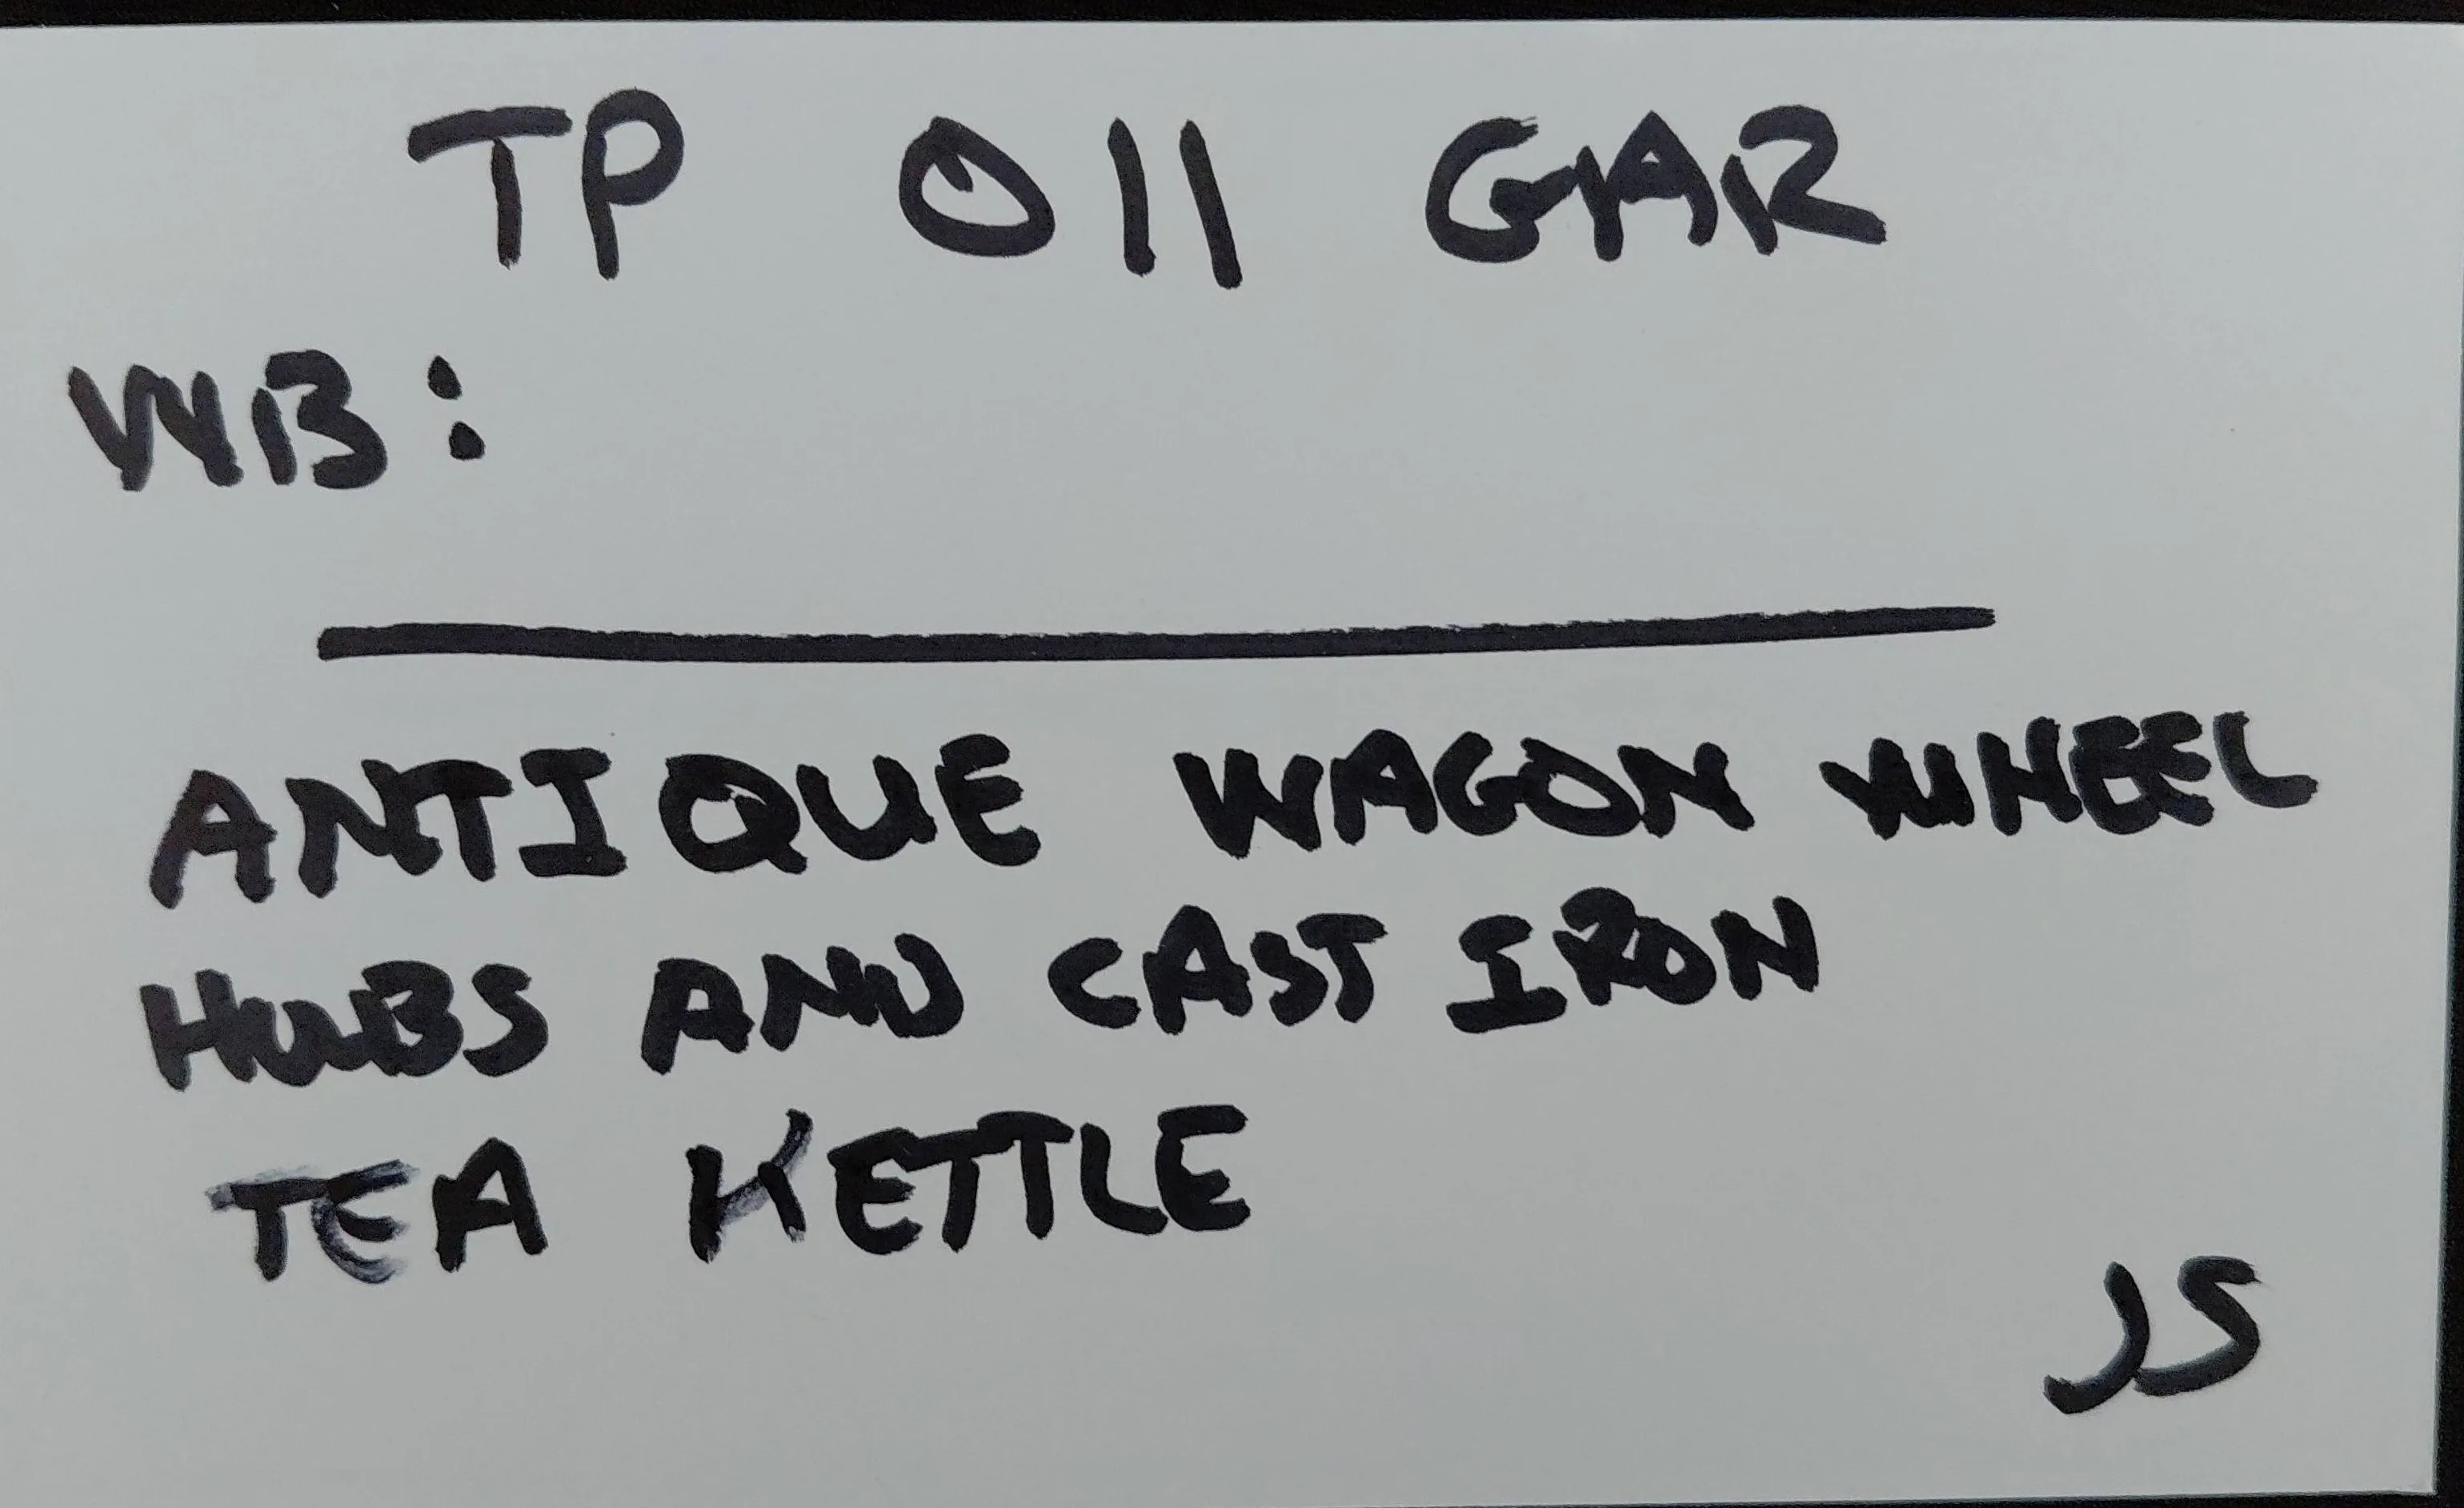 TP 011 GAR
WB:
ANTIQUE WAGON WHEEL
HUBS AND CAST IRON
TEA KETTLE
JS